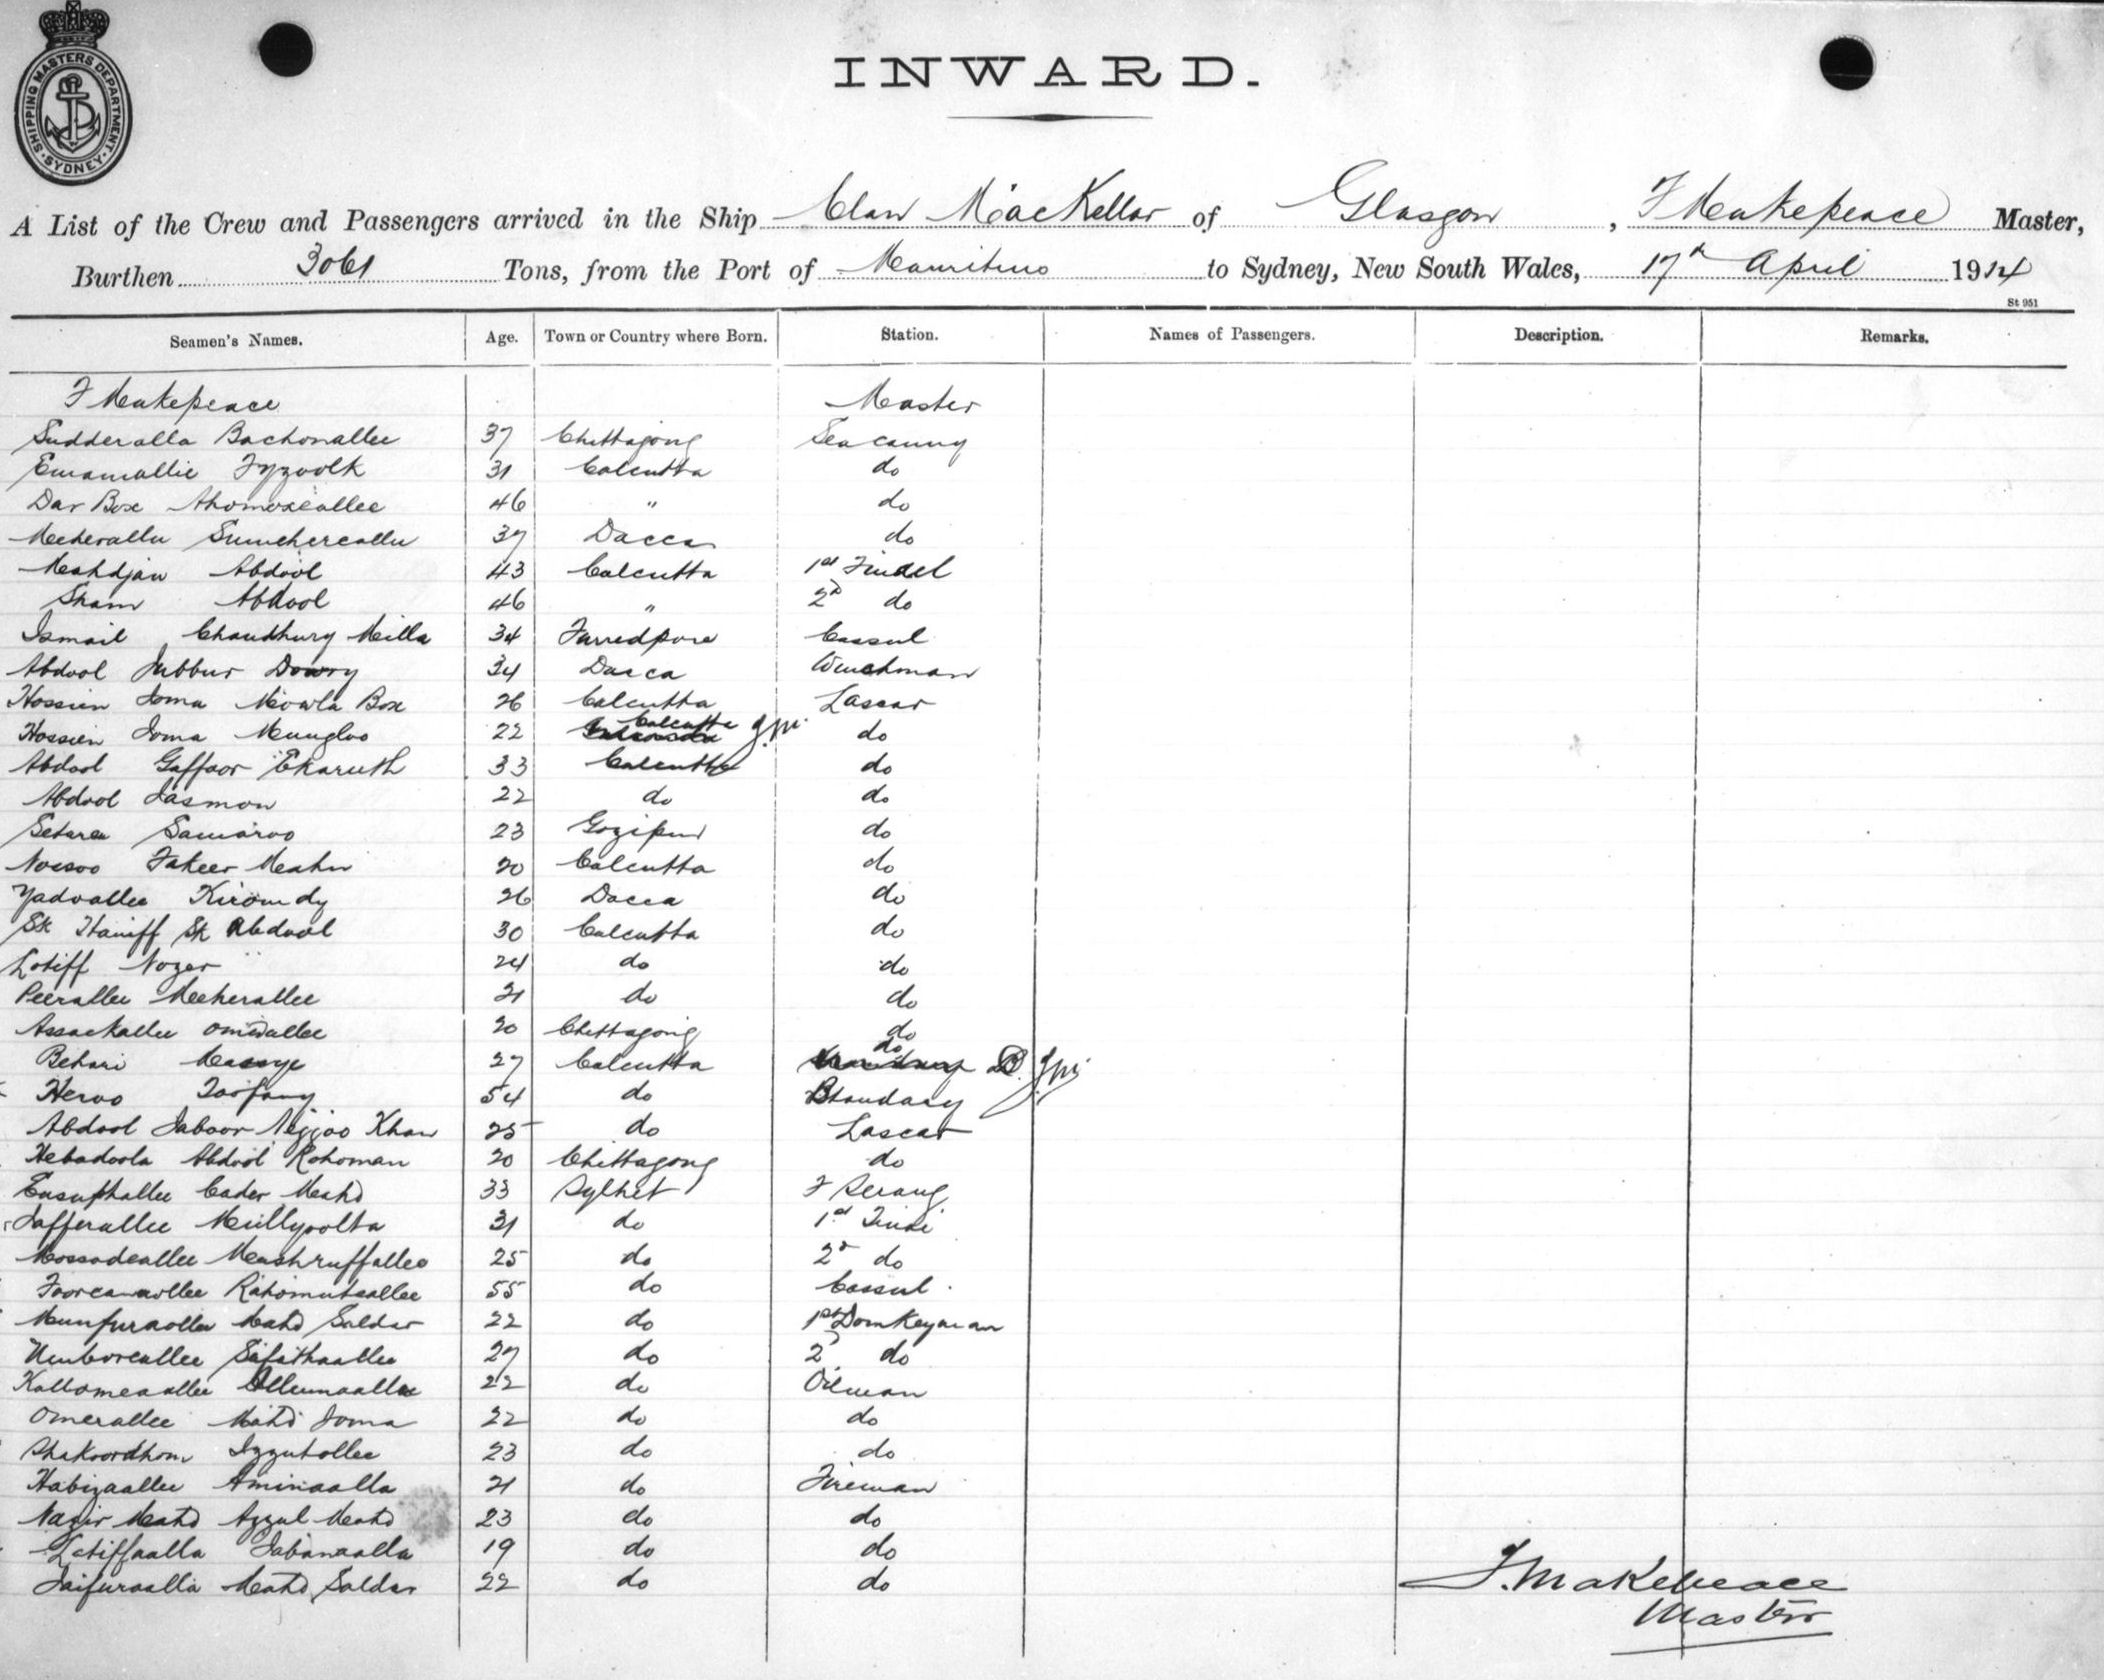 SHIPPING MASTERS DEPARTMENT
SYDNEY
INWARD.
A List of the Crew and Passengers arrived in the Ship Clan MacKellar of Glasgow, F Makepeace Master,
Burthen 3061 Tons, from the Port of Mauritius to Sydney, New South Wales, 17th April 1914
St 951
Seamen's Names. Age. Town or Country where Born. Station. Names of Passengers. Description. Remarks.
F Makepeace Master
Sudderalla Bachonallee 37 Chittagong Seacunny
Emamallie Fyzoolk 31 Calcutta do
Dar Box Ahomoxeallee 46 " do
Mederallu 37 Dacca do
Mahdjan Abdool 43 Calcutta 1st Tindel
Sham Abdool 46 " 2d do
Ismail Chaudhury Milla 34 Furredpore Cassul
Abdool Jubbur Dowry 34 Dacca Winchman
Hossien Joma Mowla Box 26 Calcutta Lascar
Hossien Joma Mungloo 22 Calcutta do
Abdool Gaffoor Ekaruth 33 Calcutta do
Abdool Jasmon 22 do do
Setaree Samaroo 23 Gozipur do
Nocsoo Fakeer Meahn 20 Calcutta do
Yadvallee Kiromdy 26 Dacca do
Sk Haniff Sk Abdool 30 Calcutta do
Lotiff Nozer 24 do do
Peerallee Meeherallee 21 do do
Assackallee Omedallee 20 Chittagong do
Behari Massye 27 Calcutta do
Heroo Toofany 54 do Bhandary
Abdool Jaboor Nejjoo Khan 25 do Lascar
Hebadoola Abdool Rohoman 20 Chittagong do
Eusuphallee Cader Mahd 33 Sylhet F Serang
Jafferallee Mullyoolta 31 do 1st Tindi
Mossadeallee Mashruffallee 25 do 2d do
Foorcanvollee Rahomutsallee 55 do Cassul.
Munfuraollee Mahd Soldar 22 do 1st Donkeyman
Umboreallee Sifathaallee 27 do 2d do
Kallomeaallee Allumaallee 22 do Oilman
Omerallee Mahd Joma 22 do do
Shakoordhom Izzutollee 23 do do
Habizaallee Aminaalla 21 do Fireman
Nazir Mahd Azzul Mahd 23 do do
Lotiffaalla Jabanaalla 19 do do
Jaifuraalla Mahd Soldar 22 do do
F. Makepeace
Master